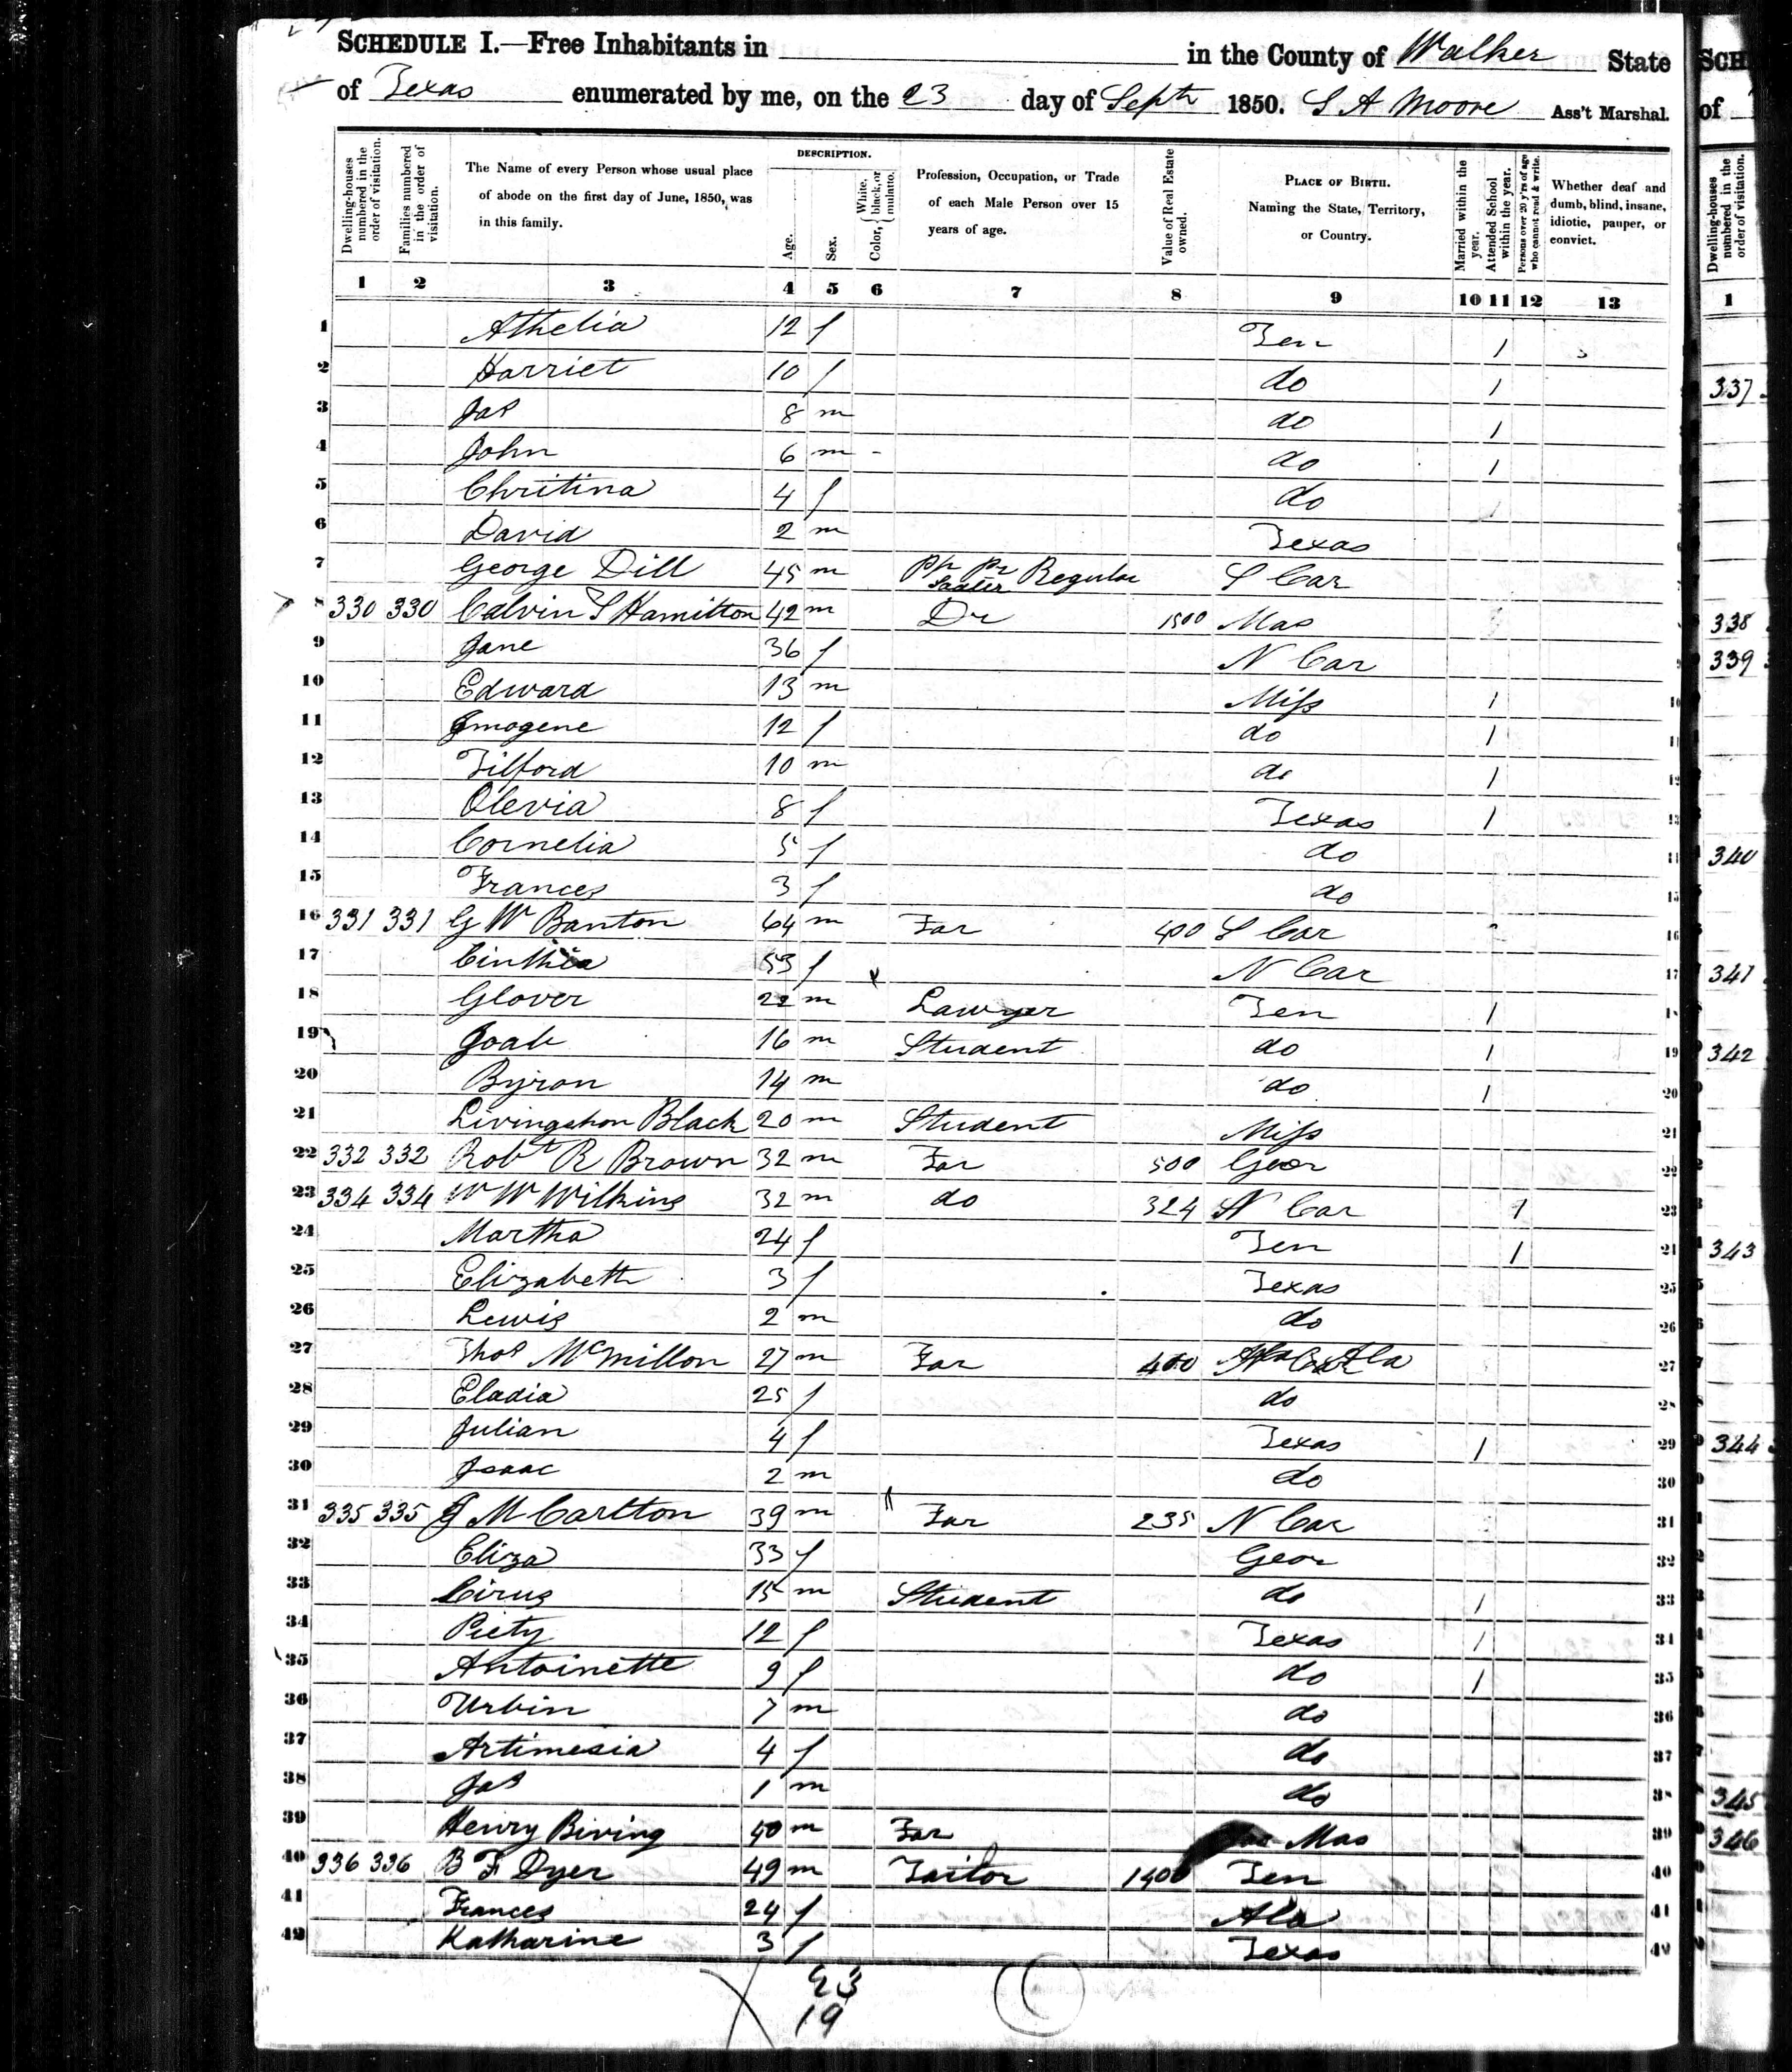 SCHEDULE I.—Free Inhabitants in in the County of Walker State
of Texas enumerated by me, on the 23 day of Septr 1850. S A Moore Ass't Marshal.
Dwelling-houses numbered in the order of visitation.
Families numbered in the order of visitation.
The Name of every Person whose usual place of abode on the first day of June, 1850, was in this family.
DESCRIPTION.
Age.
Sex.
Color, { White, black, or mulatto.
Profession, Occupation, or Trade of each Male Person over 15 years of age.
Value of Real Estate owned.
PLACE OF BIRTH. Naming the State, Territory, or Country.
Married within the year.
Attended School within the year.
Persons over 20 y'rs of age who cannot read & write.
Whether deaf and dumb, blind, insane, idiotic, pauper, or convict.
1 2 3 4 5 6 7 8 9 10 11 12 13
1 Athelia 12 f Ten 1
2 Harriet 10 f do 1
3 Jas 8 m do 1
4 John 6 m - do 1
5 Chritina 4 f do
6 David 2 m Texas
7 George Dill 45 m Regular S Car
8 330 330 Calvin S Hamilton 42 m Dr 1500 Mas
9 Jane 36 f N Car
10 Edward 13 m Miss 1
11 Imogene 12 f do 1
12 Tilford 10 m do 1
13 Olevia 8 f Texas 1
14 Cornelia 5 f do
15 Frances 3 f do
16 331 331 G W Banton 64 m Far 400 S Car
17 Cinthia 53 f N Car
18 Glover 22 m Lawyer Ten 1
19 Joab 16 m Student do 1
20 Byron 14 m do 1
21 Livingshon Black 20 m Student Miss
22 332 332 Robt R Brown 32 m Far 500 Geor
23 334 334 W W Wilkins 32 m do 324 N Car 1
24 Martha 24 f Ten 1
25 Elizabeth 3 f Texas
26 Lewis 2 m do
27 Thos McMillon 27 m Far 400 Ala
28 Eladia 25 f do
29 Julian 4 f Texas 1
30 Isaac 2 m do
31 335 335 J M Carlton 39 m Far 235 N Car
32 Eliza 33 f Geor
33 Cirus 15 m Student do 1
34 Piety 12 f Texas 1
35 Antoinette 9 f do 1
36 Urbin 7 m do
37 Artimesia 4 f do
38 Jas 1 m do
39 Henry Biving 40 m Far Mas
40 336 336 B F Dyer 49 m Tailor 1400 Ten
41 Frances 24 f Ala
42 Katharine 3 f Texas
23
19
SCH
of
Dwelling-houses numbered in the order of visitation.
1
337
338
339
340
341
342
343
344
345
346